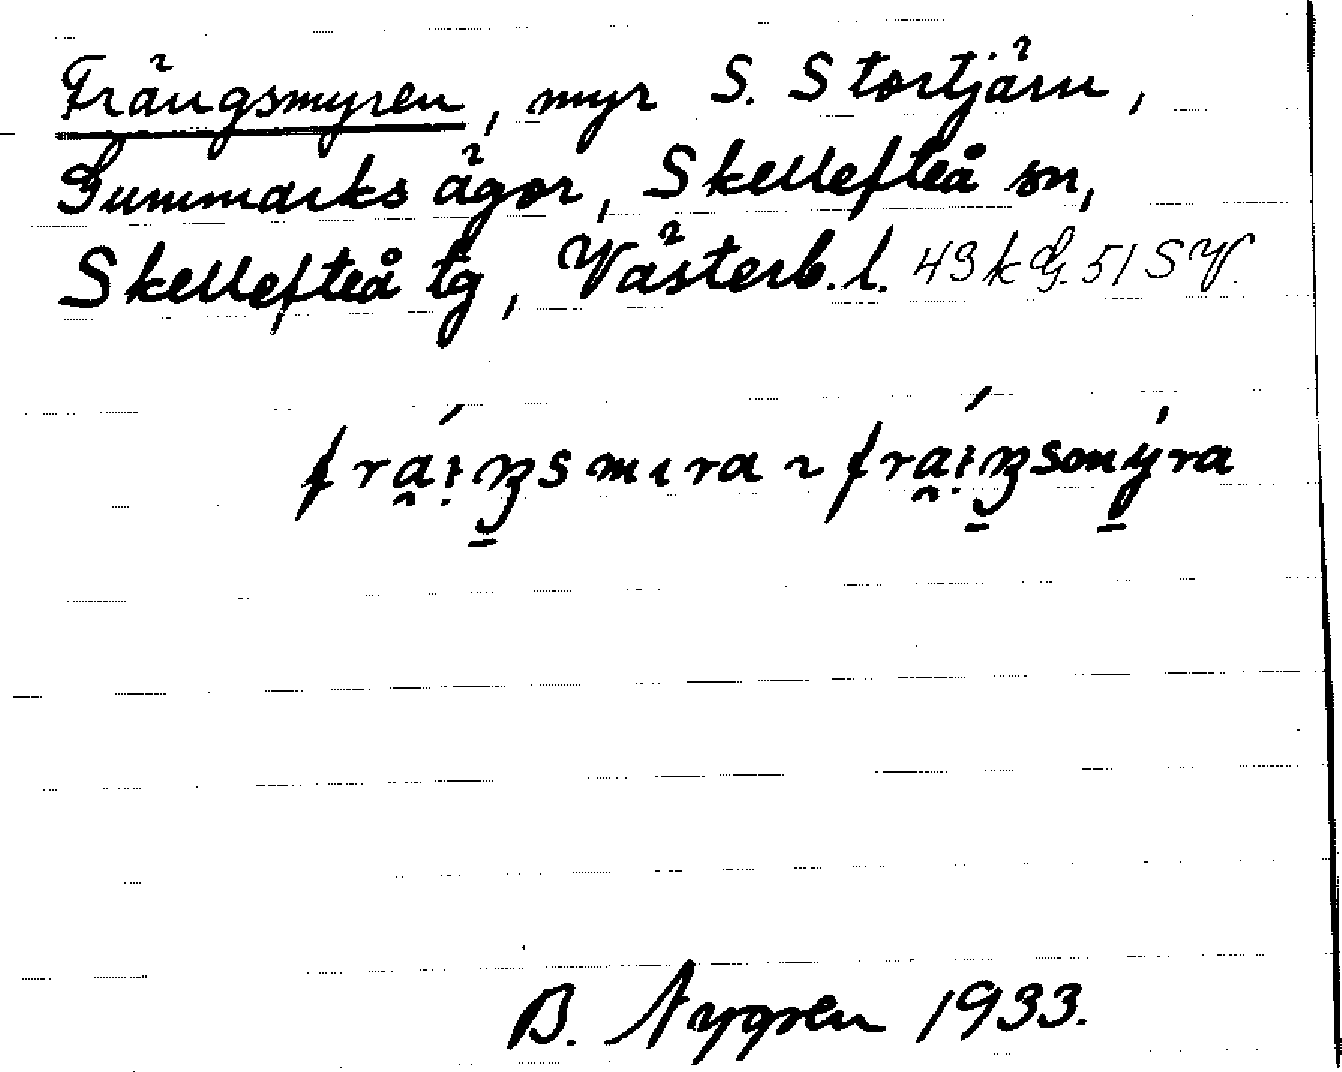 Frängsmyren, myr S. Stortjärn,
Gummarks ägor, Skellefteå sn,
Skellefteå tg, Västerb. l. 43 k G. 51 SV.
B. Nygren 1933.